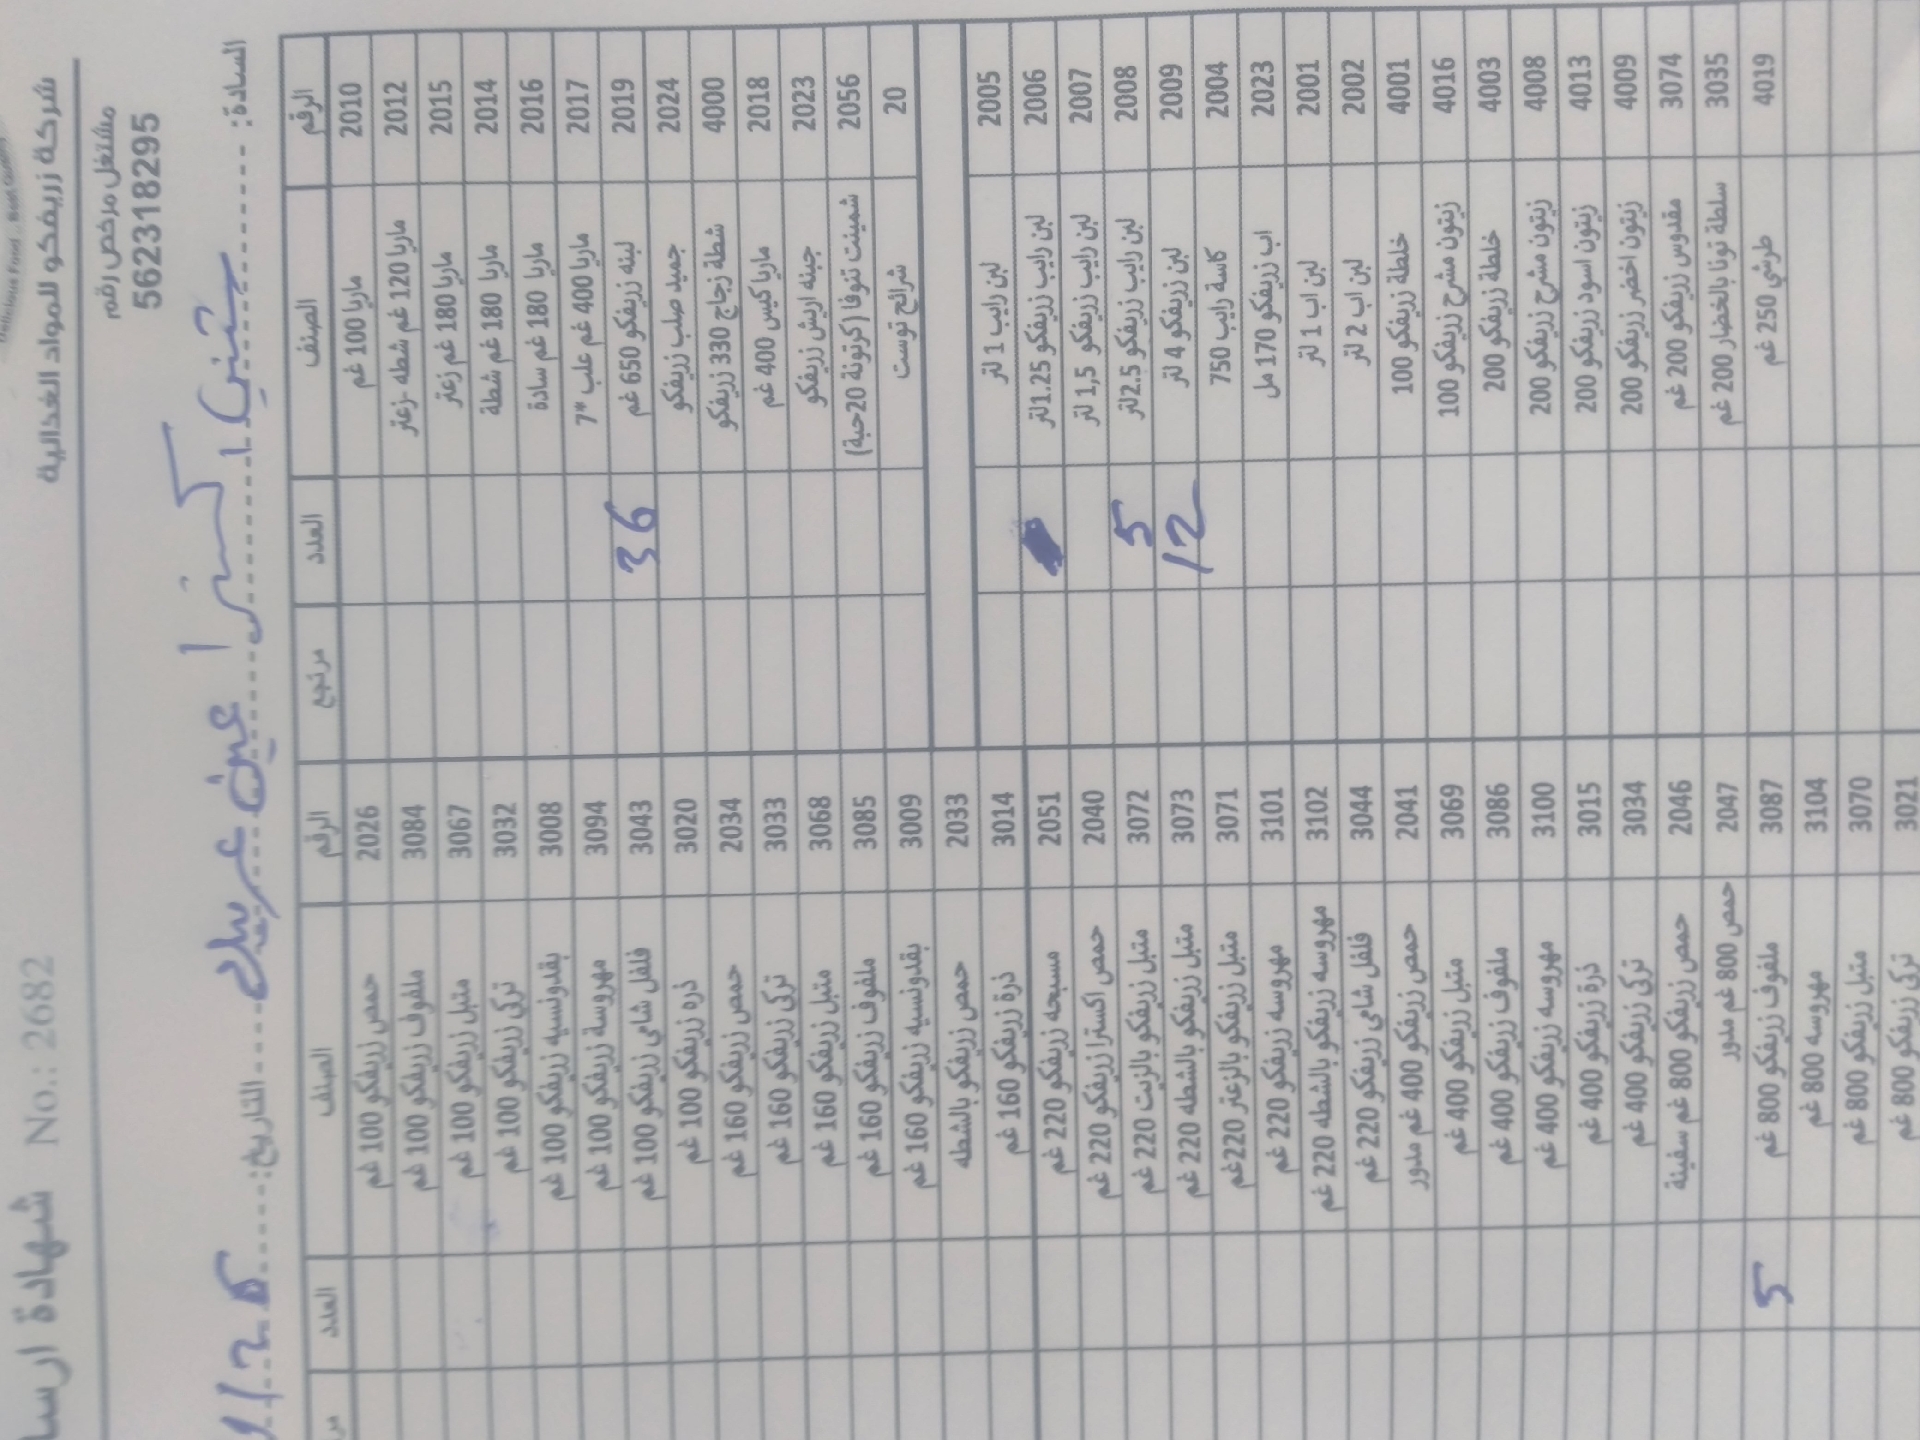 شركة زريفكو للمواد الغذائية
شهادة ارسا
No.: 2682
مشتغل مرخص رقم
562318295
السادة: اكسترا عين عريك
التاريخ:
الرقم الصنف العدد مرتجع الرقم الصنف العدد
2010 ماريا 100 غم 2026 حمص زريفكو 100 غم
2012 ماريا 120 غم شطه -زعتر 3084 ملفوف زريفكو 100 غم
2015 ماريا 180 غم زعتر 3067 متبل زريفكو 100 غم
2014 ماريا 180 غم شطة 3032 تركي زريفكو 100 غم
2016 ماريا 180 غم سادة 3008 بقدونسيه زريفكو 100 غم
2017 ماريا 400 غم علب *7 3094 مهروسة زريفكو 100 غم
2019 لبنه زريفكو 650 غم 36 3043 فلفل شامي زريفكو 100 غم
2024 جميد صلب زريفكو 3020 ذره زريفكو 100 غم
4000 شطة زجاج 330 زريفكو 2034 حمص زريفكو 160 غم
2018 ماريا كيس 400 غم 3033 تركي زريفكو 160 غم
2023 جبنه اريش زريفكو 3068 متبل زريفكو 160 غم
2056 شمينت تنوفا (كرتونة 20حبة) 3085 ملفوف زريفكو 160 غم
20 شرائح توست 3009 بقدونسيه زريفكو 160 غم
2033 حمص زريفكو بالشطه
2005 لبن رايب 1 لتر 3014 ذرة زريفكو 160 غم
2006 لبن رايب زريفكو 1.25لتر 2051 مسبحه زريفكو 220 غم
2007 لبن رايب زريفكو 1,5 لتر 2040 حمص اكسترا زريفكو 220 غم
2008 لبن رايب زريفكو 2.5لتر 5 3072 متبل زريفكو بالزيت 220 غم
2009 لبن زريفكو 4 لتر 12 3073 متبل زريفكو بالشطه 220 غم
2004 كاسة رايب 750 3071 متبل زريفكو بالزعتر 220غم
2023 اب زريفكو 170 مل 3101 مهروسه زريفكو 220 غم
2001 لبن اب 1 لتر 3102 مهروسه زريفكو بالشطه 220 غم
2002 لبن اب 2 لتر 3044 فلفل شامي زريفكو 220 غم
4001 خلطة زريفكو 100 2041 حمص زريفكو 400 غم مدور
4016 زيتون مشرح زريفكو 100 3069 متبل زريفكو 400 غم
4003 خلطة زريفكو 200 3086 ملفوف زريفكو 400 غم
4008 زيتون مشرح زريفكو 200 3100 مهروسه زريفكو 400 غم
4013 زيتون اسود زريفكو 200 3015 ذرة زريفكو 400 غم
4009 زيتون اخضر زريفكو 200 3034 تركي زريفكو 400 غم
3074 مقدوس زريفكو 200 غم 2046 حمص زريفكو 800 غم سفينة
3035 سلطة تونا بالخضار 200 غم 2047 حمص 800 غم مدور
4019 طرشي 250 غم 3087 ملفوف زريفكو 800 غم 5
3104 مهروسه 800 غم
3070 متبل زريفكو 800 غم
3021 تركي زريفكو 800 غم